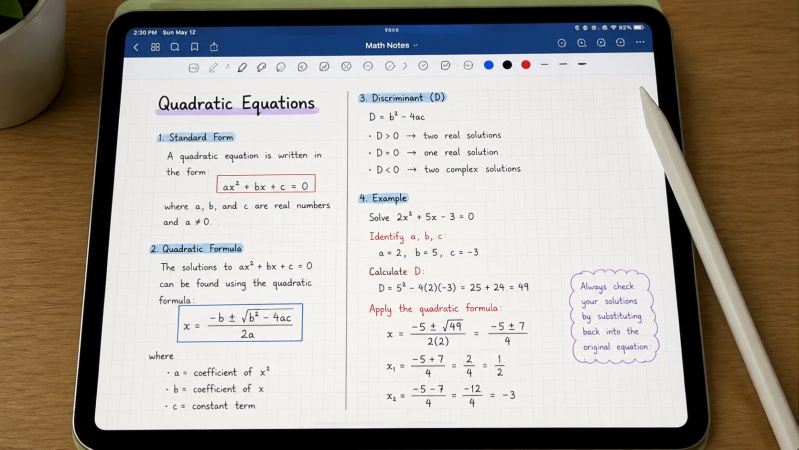 2:30 PM Sun May 12
92%
Math Notes
Quadratic Equations
1. Standard Form
A quadratic equation is written in
the form:
ax² + bx + c = 0
where a, b, and c are real numbers
and a ≠ 0.
2. Quadratic Formula
The solutions to ax² + bx + c = 0
can be found using the quadratic
formula:
x = (-b ± √(b² - 4ac)) / 2a
where
· a = coefficient of x²
· b = coefficient of x
· c = constant term
3. Discriminant (D)
D = b² - 4ac
· D > 0 → two real solutions
· D = 0 → one real solution
· D < 0 → two complex solutions
4. Example
Solve 2x² + 5x - 3 = 0
Identify a, b, c:
a = 2, b = 5, c = -3
Calculate D:
D = 5² - 4(2)(-3) = 25 + 24 = 49
Apply the quadratic formula:
x = (-5 ± √49) / 2(2) = (-5 ± 7) / 4
x₁ = (-5 + 7) / 4 = 2/4 = 1/2
x₂ = (-5 - 7) / 4 = -12/4 = -3
Always check
your solutions
by substituting
back into the
original equation: